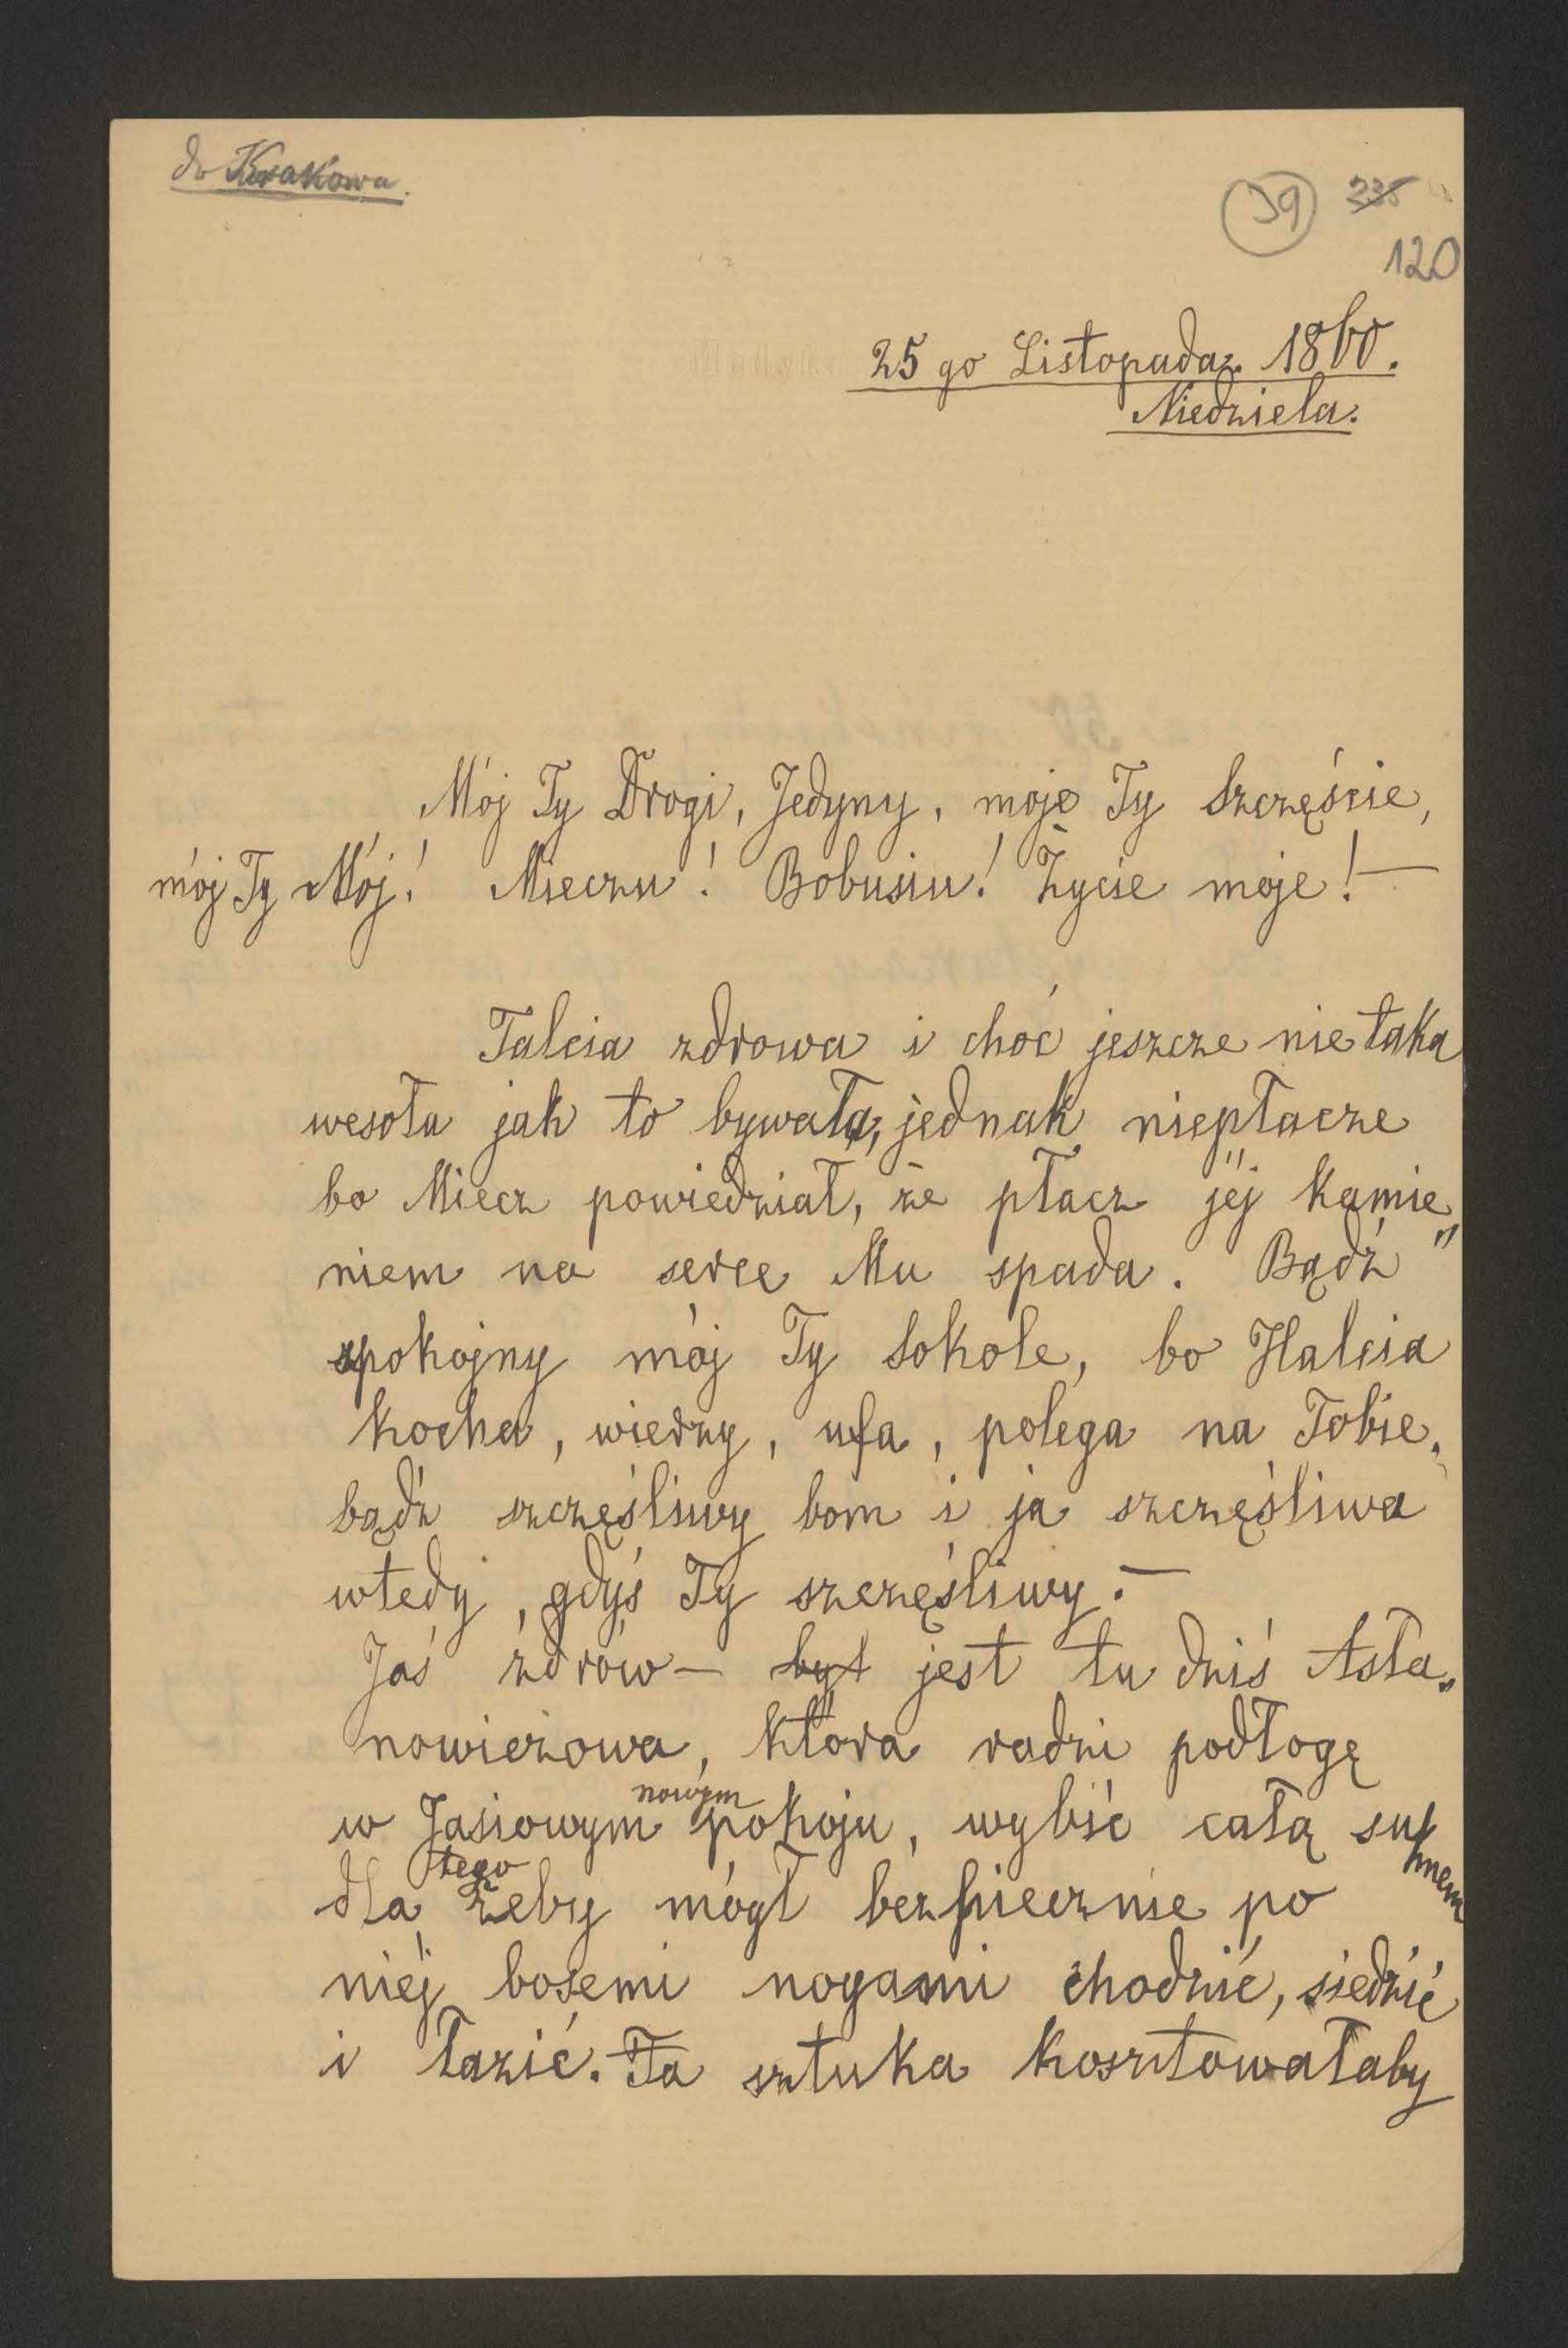 do Krakowa.
39 235
120
25 go Listopada 1860.
Niedziela.
Mój Ty Drogi, Jedyny, moje Ty Szczęście,
mój Ty Mój! Mieczu! Bobusiu! Życie moje! —
Talcia zdrowa i choć jeszcze nie taka
wesoła jak to bywała, jednak niepłacze
bo Miecz powiedział, że płacz jej kamie„
niem na serce Mu spada. Bądź
spokojny mój Ty Sokole, bo Halcia
kocha, wierzy, ufa, polega na Tobie.
bądź szczęśliwy bom i ja szczęśliwa
wtedy, gdyś Ty szczęśliwy. —
Jaś zdrów — był jest tu dziś Asła„
nowiczowa, która radzi podłogę
w Jasiowym nowym pokoju, wybić całą suknem
dla tego żeby mógł bezpiecznie po
niéj bosemi nogami chodzić, siedzić
i łazić. Ta sztuka kosztowałaby